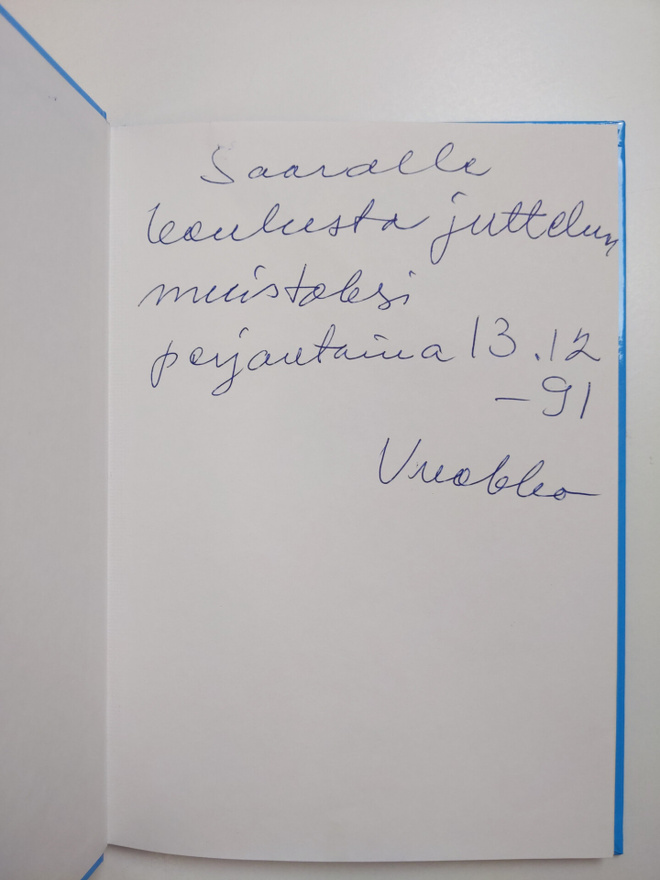 Saaralle
koulusta juttelun
muistoksi
perjantaina 13.12
-91
Vuokko